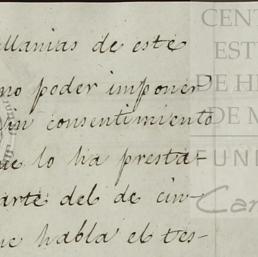 llanias de este
no poder imponer
sin consentimiento
ue lo ha presta-
arte del de cin-
ue habla el tes-
CENT
EST
DE H
DE M
FUN
Car